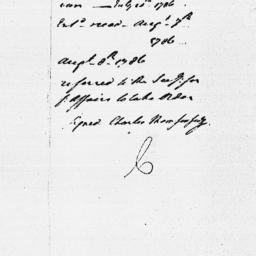 — July 20th 1786.
Entd. read Augt. 7th
1786
Augt. 8th 1786
referred to the Secy. for
f. Affairs to take Order
signed Charles Thomson Secy.